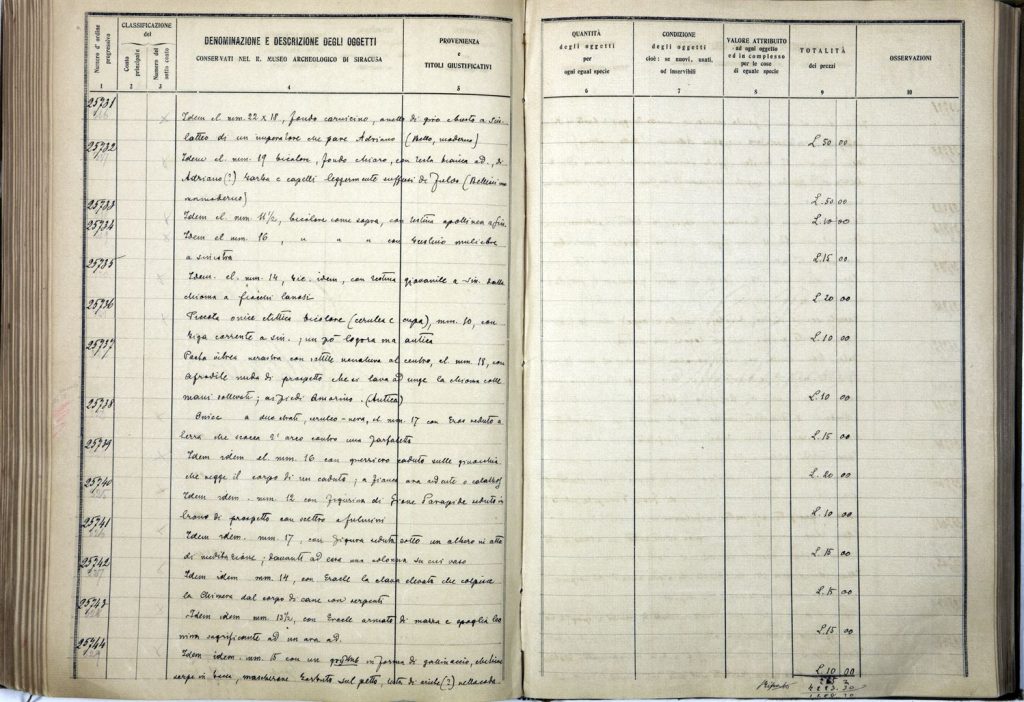 Numero d'ordine progressivo
CLASSIFICAZIONE del
Conto principale
Numero del sotto conto
DENOMINAZIONE E DESCRIZIONE DEGLI OGGETTI
CONSERVATI NEL R. MUSEO ARCHEOLOGICO DI SIRACUSA
PROVENIENZA
e
TITOLI GIUSTIFICATIVI
QUANTITÀ
degli oggetti
per
ogni egual specie
CONDIZIONE
degli oggetti
cioè: se nuovi, usati,
od inservibili
VALORE ATTRIBUITO
ad ogni oggetto
ed in complesso
per le cose
di eguale specie
TOTALITÀ
dei prezzi
OSSERVAZIONI
1 2 3 4 5 6 7 8 9 10
25731
Idem el. mm. 22 x 18, fondo carnicino, anello di giro busto a sin.
latteo di un imperatore che pare Adriano (Bello, moderno) L. 50 00
25732
Idem el. mm. 19 bicolore, fondo chiaro, con testa bianca ad., di
Adriano (?) barba e capelli leggermente suffusi di fulvo
L. 50 00
25733
Idem el. mm. 11 1/2, bicolore come sopra, con testina apollinea a sin. L. 10 00
25734
Idem el. mm. 16, " " " con bustino muliebre
a sinistra L. 15 00
25735
Idem. el. mm. 14, bic. idem, con testina giovanile a sin. dalla
chioma a fiocchi lanosi L. 20 00
25736
Piccola onice elittica bicolore (cerulea e cupa), mm. 10, con
biga corrente a sin.; un pò logora ma antica L. 10 00
25737
Pasta vitrea nerastra con sottile al centro, el mm. 18, con
Afrodite nuda di prospetto che si lava ad unge la chioma colle
mani sollevati; ai piedi Amorino. (Antica) L. 10 00
25738
Onice a due strati, ceruleo-nera, el mm. 17 con Eros seduto a
terra che scocca l'arco contro una farfalletta L. 15 00
25739
Idem idem el. mm. 16 con guerriero caduto sulle ginocchia
che regge il corpo di un caduto; a fianco ara L. 20 00
25740
Idem idem. mm. 12 con figurina di Giove Serapide seduto in
trono di prospetto con scettro e fulmini L. 10 00
25741
Idem idem. mm. 17, con figura seduta sotto un albero in atto
di meditazione; davanti ad essa una colonna su cui vaso L. 15 00
25742
Idem idem mm. 14, con Eracle la clava elevata che colpisce
la Chimera dal corpo di cane con serpenti L. 15 00
25743
Idem idem mm. 13 1/2, con Eracle armato di mazza e spoglia leo
nina sagrificante ad un ara ad. L. 15 00
25744
Idem idem. mm. 15 con un grillo in forma di gallinaccio, che tiene
serpe in becco, mascherone barbuto sul petto, testa di ariete (?) nella coda L. 10 00
Riporto